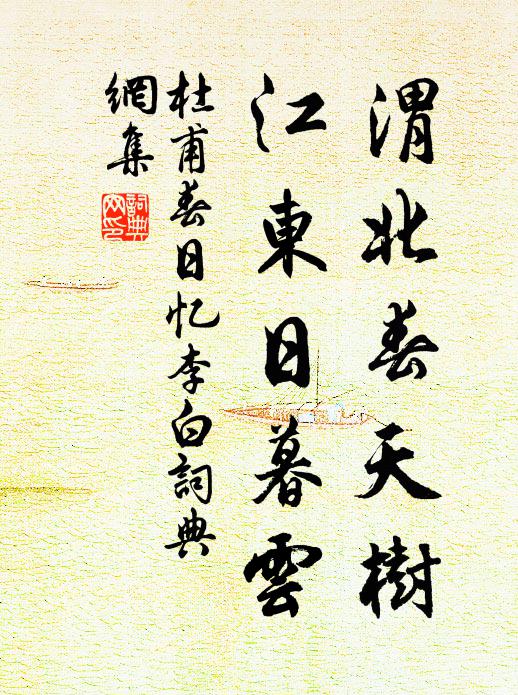 渭北春天樹
江東日暮雲
杜甫春日忆李白詞典
網集
詞典网印